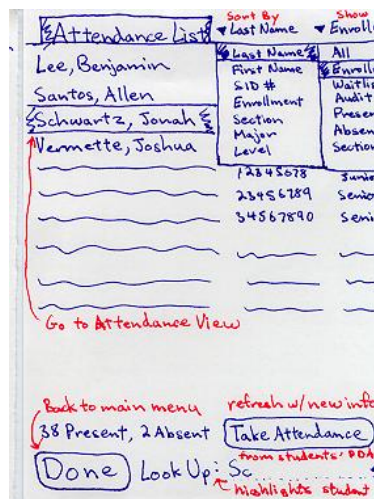 Sort By Show
Attendance List ▾ Last Name ▾ Enroll
Lee, Benjamin
Santos, Allen
Schwartz, Jonah
Vermette, Joshua
Last Name
First Name
SID #
Enrollment
Section
Major
Level
All
Enroll
Waitli
Audit
Presen
Absen
Section
12345678 Junio
23456789 Senio
34567890 Seni
Go to Attendance View
Back to main menu refresh w/ new info
38 Present, 2 Absent Take Attendance
from students' PDA
Done Look Up: Sc
highlights student